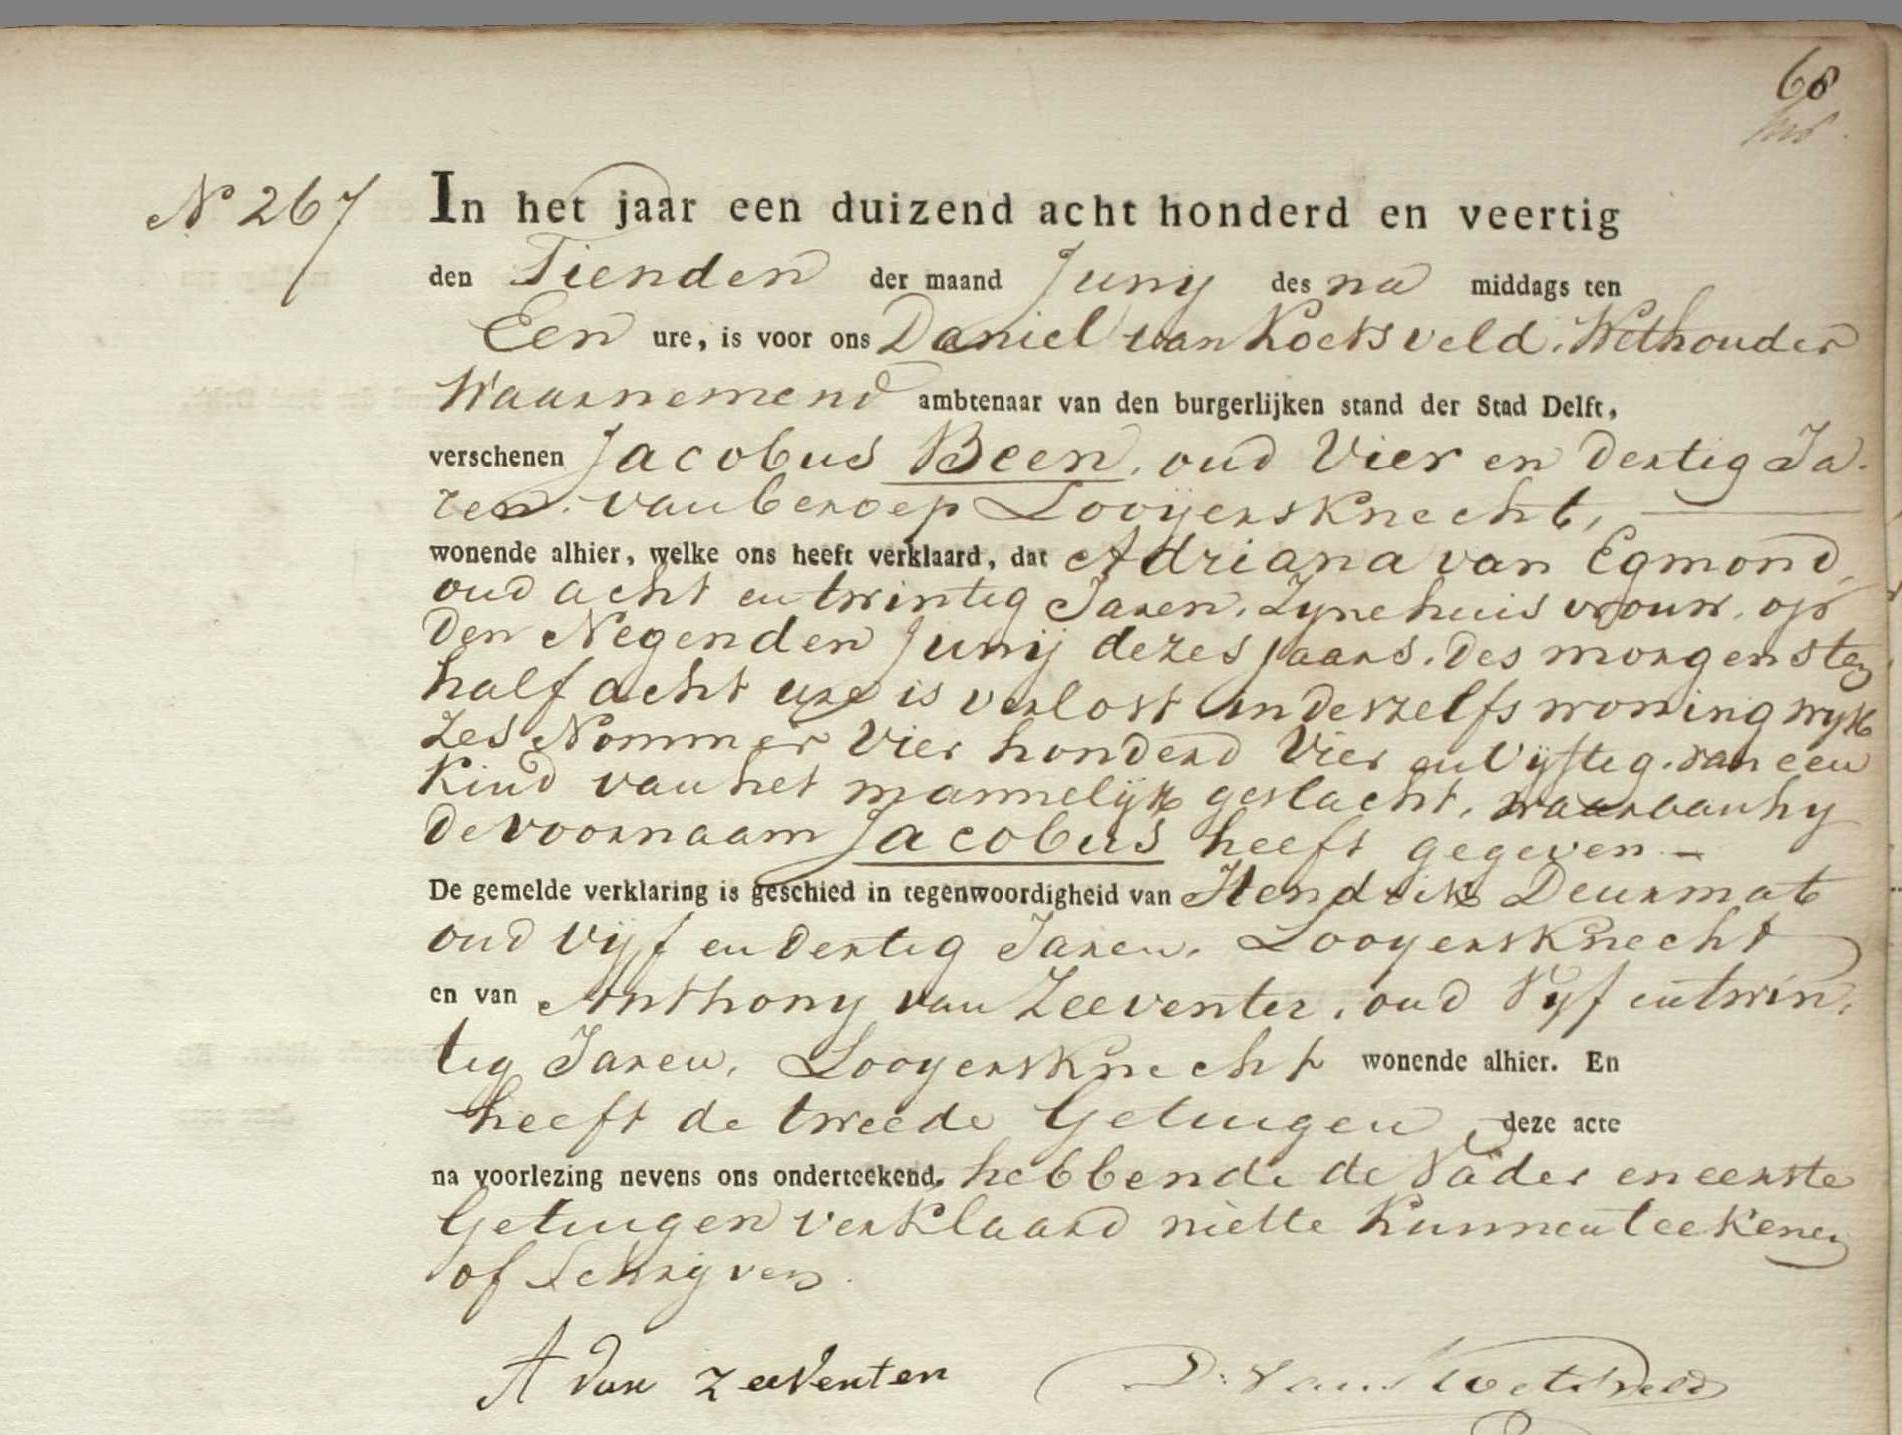 68
No 267
In het jaar een duizend acht honderd en veertig
den Tienden der maand Junij des na middags ten
Een ure, is voor ons Daniel van Koetsveld. Wethouder
Waarnemend ambtenaar van den burgerlijken stand der Stad Delft,
verschenen Jacobus Been, oud Vier en Dertig Ja-
ren. van beroep Looijersknecht,
wonende alhier, welke ons heeft verklaard, dat Adriana van Egmond,
oud acht en twintig Jaren, Zyne huisvrouw, op
den Negenden Junij dezes Jaars. des morgens ten
half acht ure is verlost in deszelfs woning wyk
Zes Nommer Vier honderd Vier en Vijftig. van een
Kind van het mannelijk geslacht, waarvan hy
de voornaam Jacobus heeft gegeven —
De gemelde verklaring is geschied in tegenwoordigheid van Hendrik Deurmat
oud Vijf en dertig Jaren, Looyersknecht
en van Anthony van Zeeventer, oud Vyf en twin-
tig Jaren, Looyersknecht wonende alhier. En
heeft de tweede Getuigen deze acte
na voorlezing nevens ons onderteekend, hebbende de Vader en eerste
Getuigen verklaard niet te Kunnen teekenen
of Schryven.
A van Zeeventen D: van Koetsveld